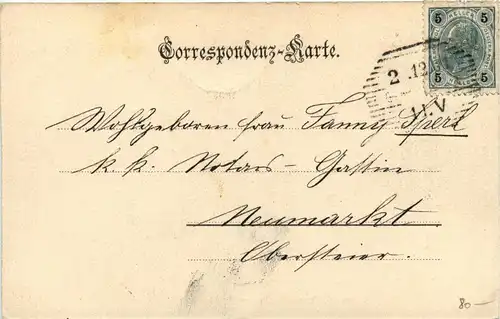 Correspondenz-Karte.
5 5
2 12
5 5
IV
Wohlgeboren Frau Fanny Sperl
k. k. Notars-Gattin
Neumarkt
Obersteier.
80-